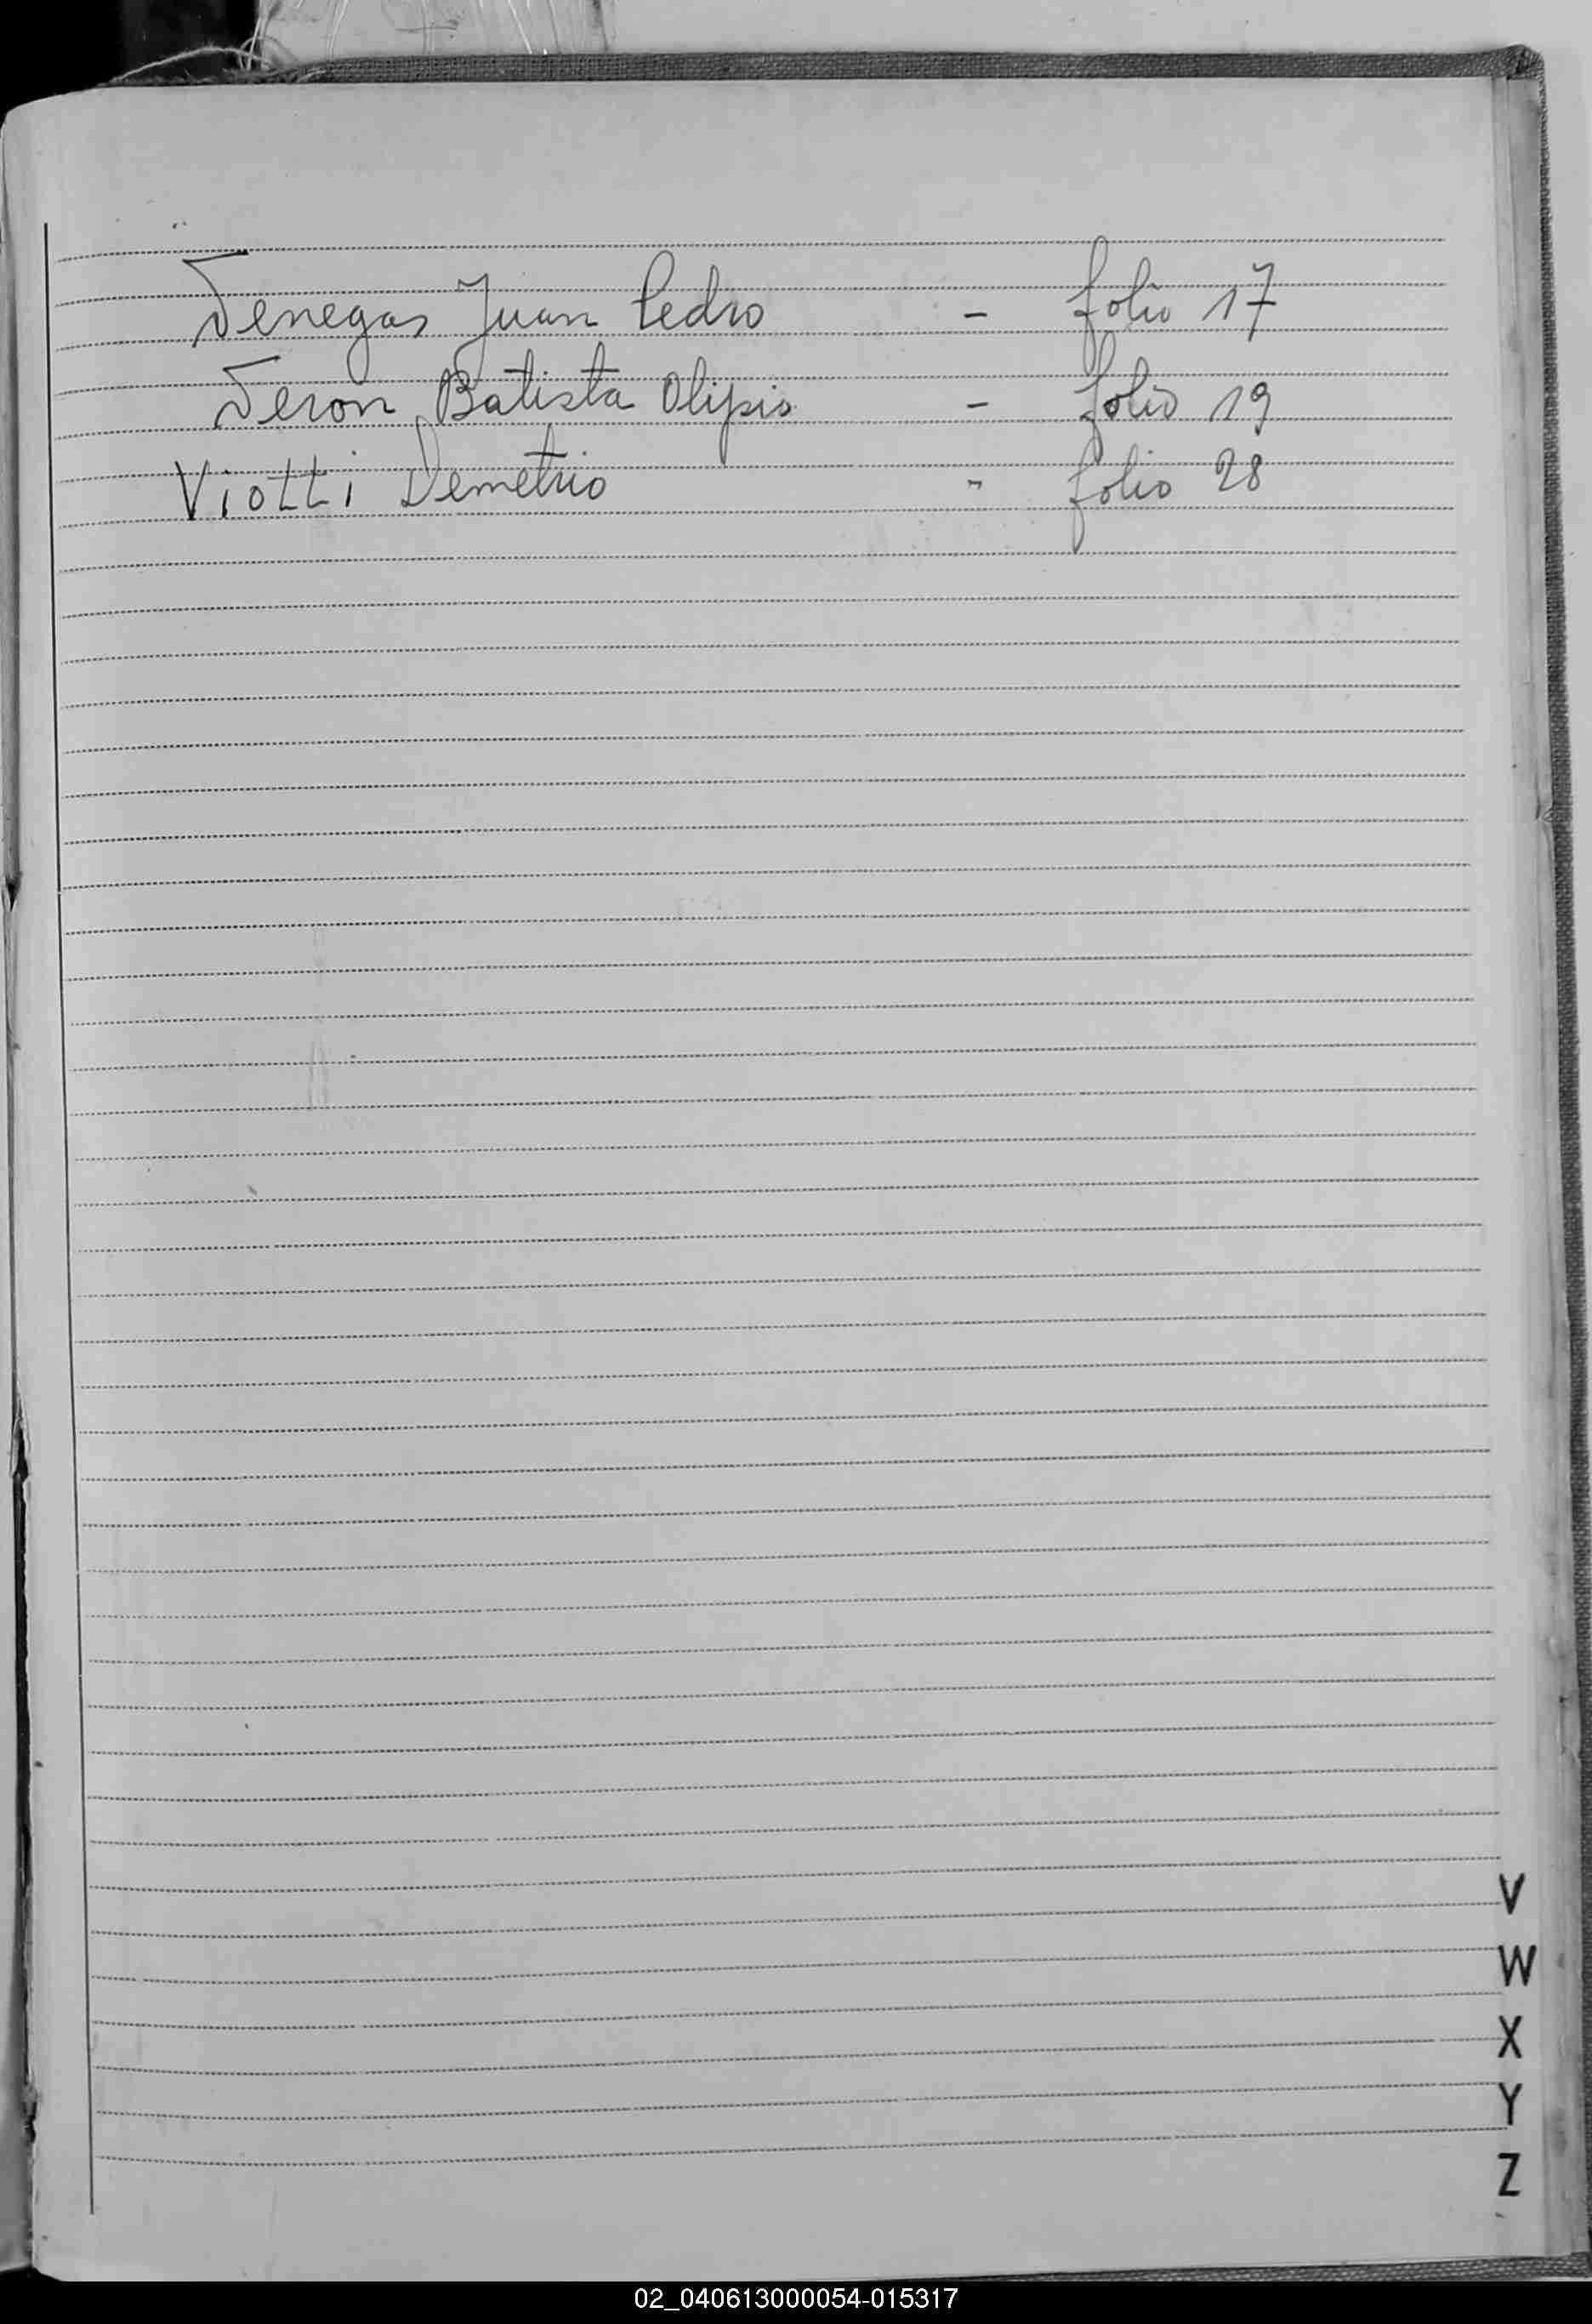 Venegas Juan Pedro - folio 17
Veron Batista Olipio - folio 19
Viotti Demetrio - folio 28
V
W
X
Y
Z
02_040613000054-015317